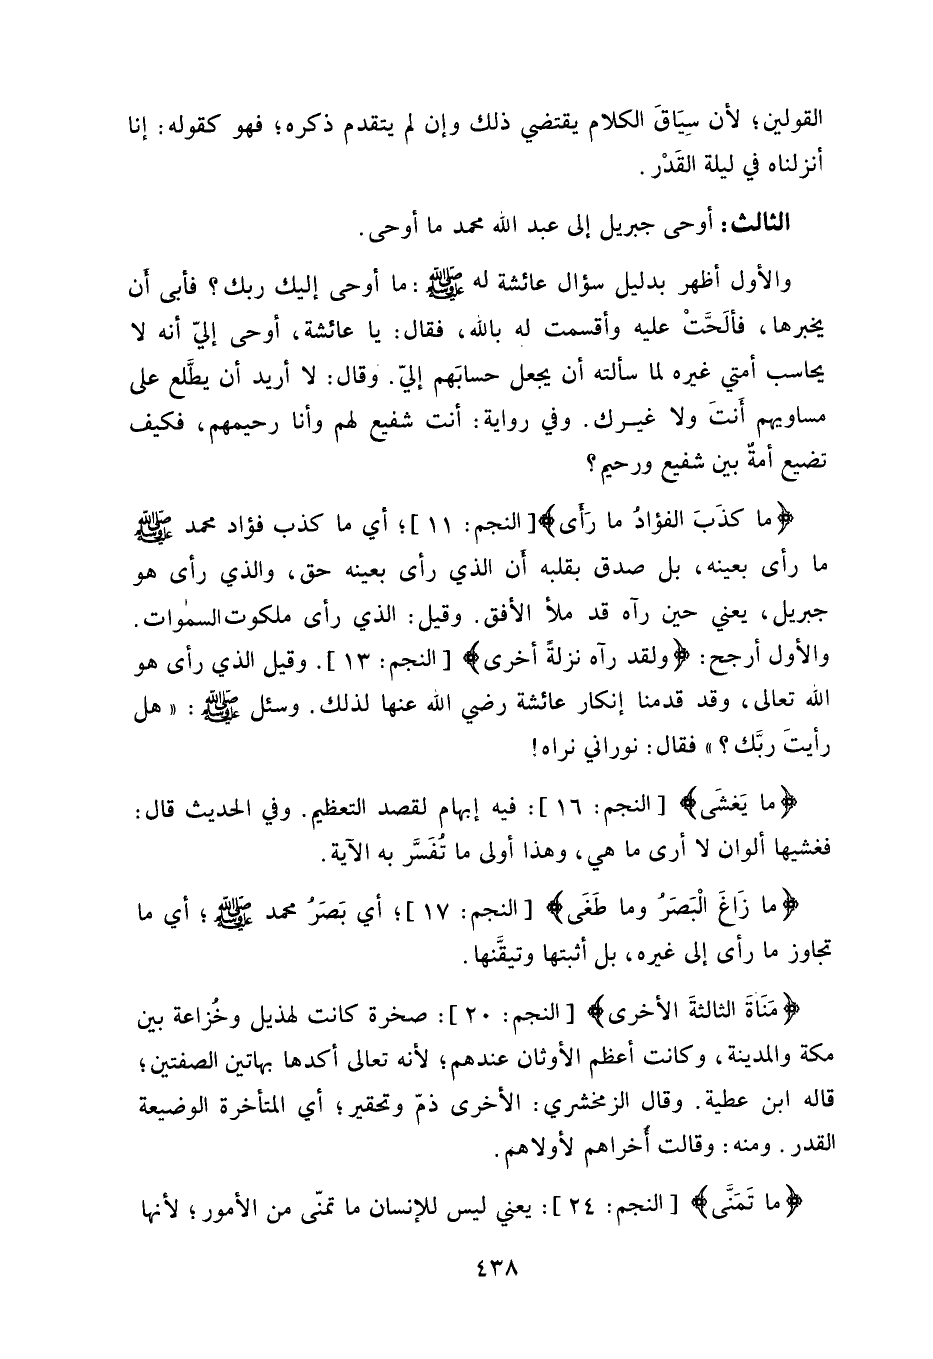 القولين؛ لأن سِيَاقَ الكلام يقتضي ذلك وإن لم يتقدم ذكره؛ فهو كقوله: إنا
أنزلناه في ليلة القَدْر.
الثالث: أوحى جبريل إلى عبد الله محمد ما أوحى.
والأول أظهر بدليل سؤال عائشة له ﷺ: ما أوحى إليك ربك؟ فأبى أَن
يخبرها، فألَحَّتْ عليه وأقسمت له بالله، فقال: يا عائشة، أوحى إليّ أنه لا
يحاسب أمتي غيره لما سألته أن يجعل حسابَهم إليّ. وقال: لا أريد أن يطَّلع على
مساويهم أَنتَ ولا غيرك. وفي رواية: أنت شفيع لهم وأنا رحيمهم، فكيف
تضيع أمةٌ بين شفيع ورحيم؟
﴿ما كذَبَ الفؤادُ ما رَأَى﴾[النجم: ١١]؛ أي ما كذب فؤاد محمد ﷺ
ما رأى بعينه، بل صدق بقلبه أَن الذي رأى بعينه حق، والذي رأى هو
جبريل، يعني حين رآه قد ملأ الأفق. وقيل: الذي رأى ملكوت السمٰوات.
والأول أرجح: ﴿ولقد رآه نزلةً أخرى﴾ [النجم: ١٣]. وقيل الذي رأى هو
الله تعالى، وقد قدمنا إنكار عائشة رضي الله عنها لذلك. وسئل ﷺ: «هل
رأيتَ ربَّك؟» فقال: نوراني نراه!
﴿ما يَغشَى﴾ [النجم: ١٦]: فيه إبهام لقصد التعظيم. وفي الحديث قال:
فغشيها ألوان لا أرى ما هي، وهذا أولى ما تُفَسَّر به الآية.
﴿ما زَاغَ الْبَصَرُ وما طَغَى﴾ [النجم: ١٧]؛ أي بَصَرُ محمد ﷺ؛ أي ما
تجاوز ما رأى إلى غيره، بل أثبتها وتيقَّنها.
﴿مَنَاةَ الثالثةَ الأخرى﴾ [النجم: ٢٠]: صخرة كانت لهذيل وخُزاعة بين
مكة والمدينة، وكانت أعظم الأوثان عندهم؛ لأنه تعالى أكدها بهاتين الصفتين؛
قاله ابن عطية. وقال الزمخشري: الأخرى ذمّ وتحقير؛ أي المتأخرة الوضيعة
القدر. ومنه: وقالت أُخراهم لأولاهم.
﴿ما تَمَنَّى﴾ [النجم: ٢٤]: يعني ليس للإنسان ما تمنّى من الأمور؛ لأنها
٤٣٨